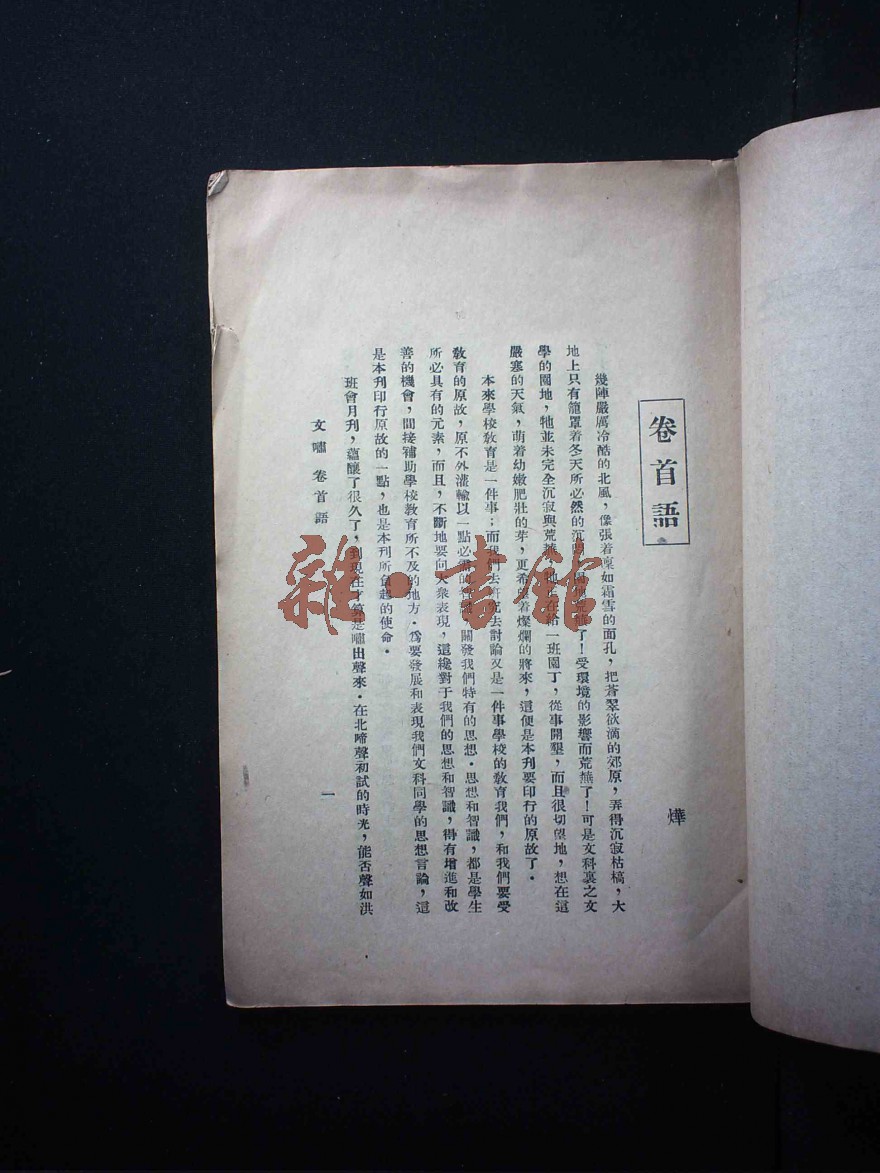 卷首語
燁
幾陣嚴厲冷酷的北風，像張着凜如霜雪的面孔，把蒼翠欲滴的郊原，弄得沉寂枯槁，大
地上只有籠罩着冬天所必然的沉寂荒蕪了！受環境的影響而荒蕪了！可是文科裏之文
學的園地，牠並未完全沉寂與荒蕪，牠正在給一班園丁，從事開墾，而且很切望地，想在這
嚴寒的天氣，萌着幼嫩肥壯的芽，更希望着燦爛的將來，這便是本刊要印行的原故了。
本來學校教育是一件事；而我們去研究去討論又是一件事學校的教育我們，和我們要受
教育的原故，原不外灌輸以一點必需的智識，開發我們特有的思想。思想和智識，都是學生
所必具有的元素，而且，不斷地要向大衆表現，這纔對于我們的思想和智識，得有增進和改
善的機會，間接補助學校教育所不及的地方。爲要發展和表現我們文科同學的思想言論，這
是本刊印行原故的一點，也是本刊所負起的使命。
班會月刊，蘊釀了很久了，到現在才算是嘯出聲來。在北啼聲初試的時光，能否聲如洪
文嘯 卷首語
一
雜·書館